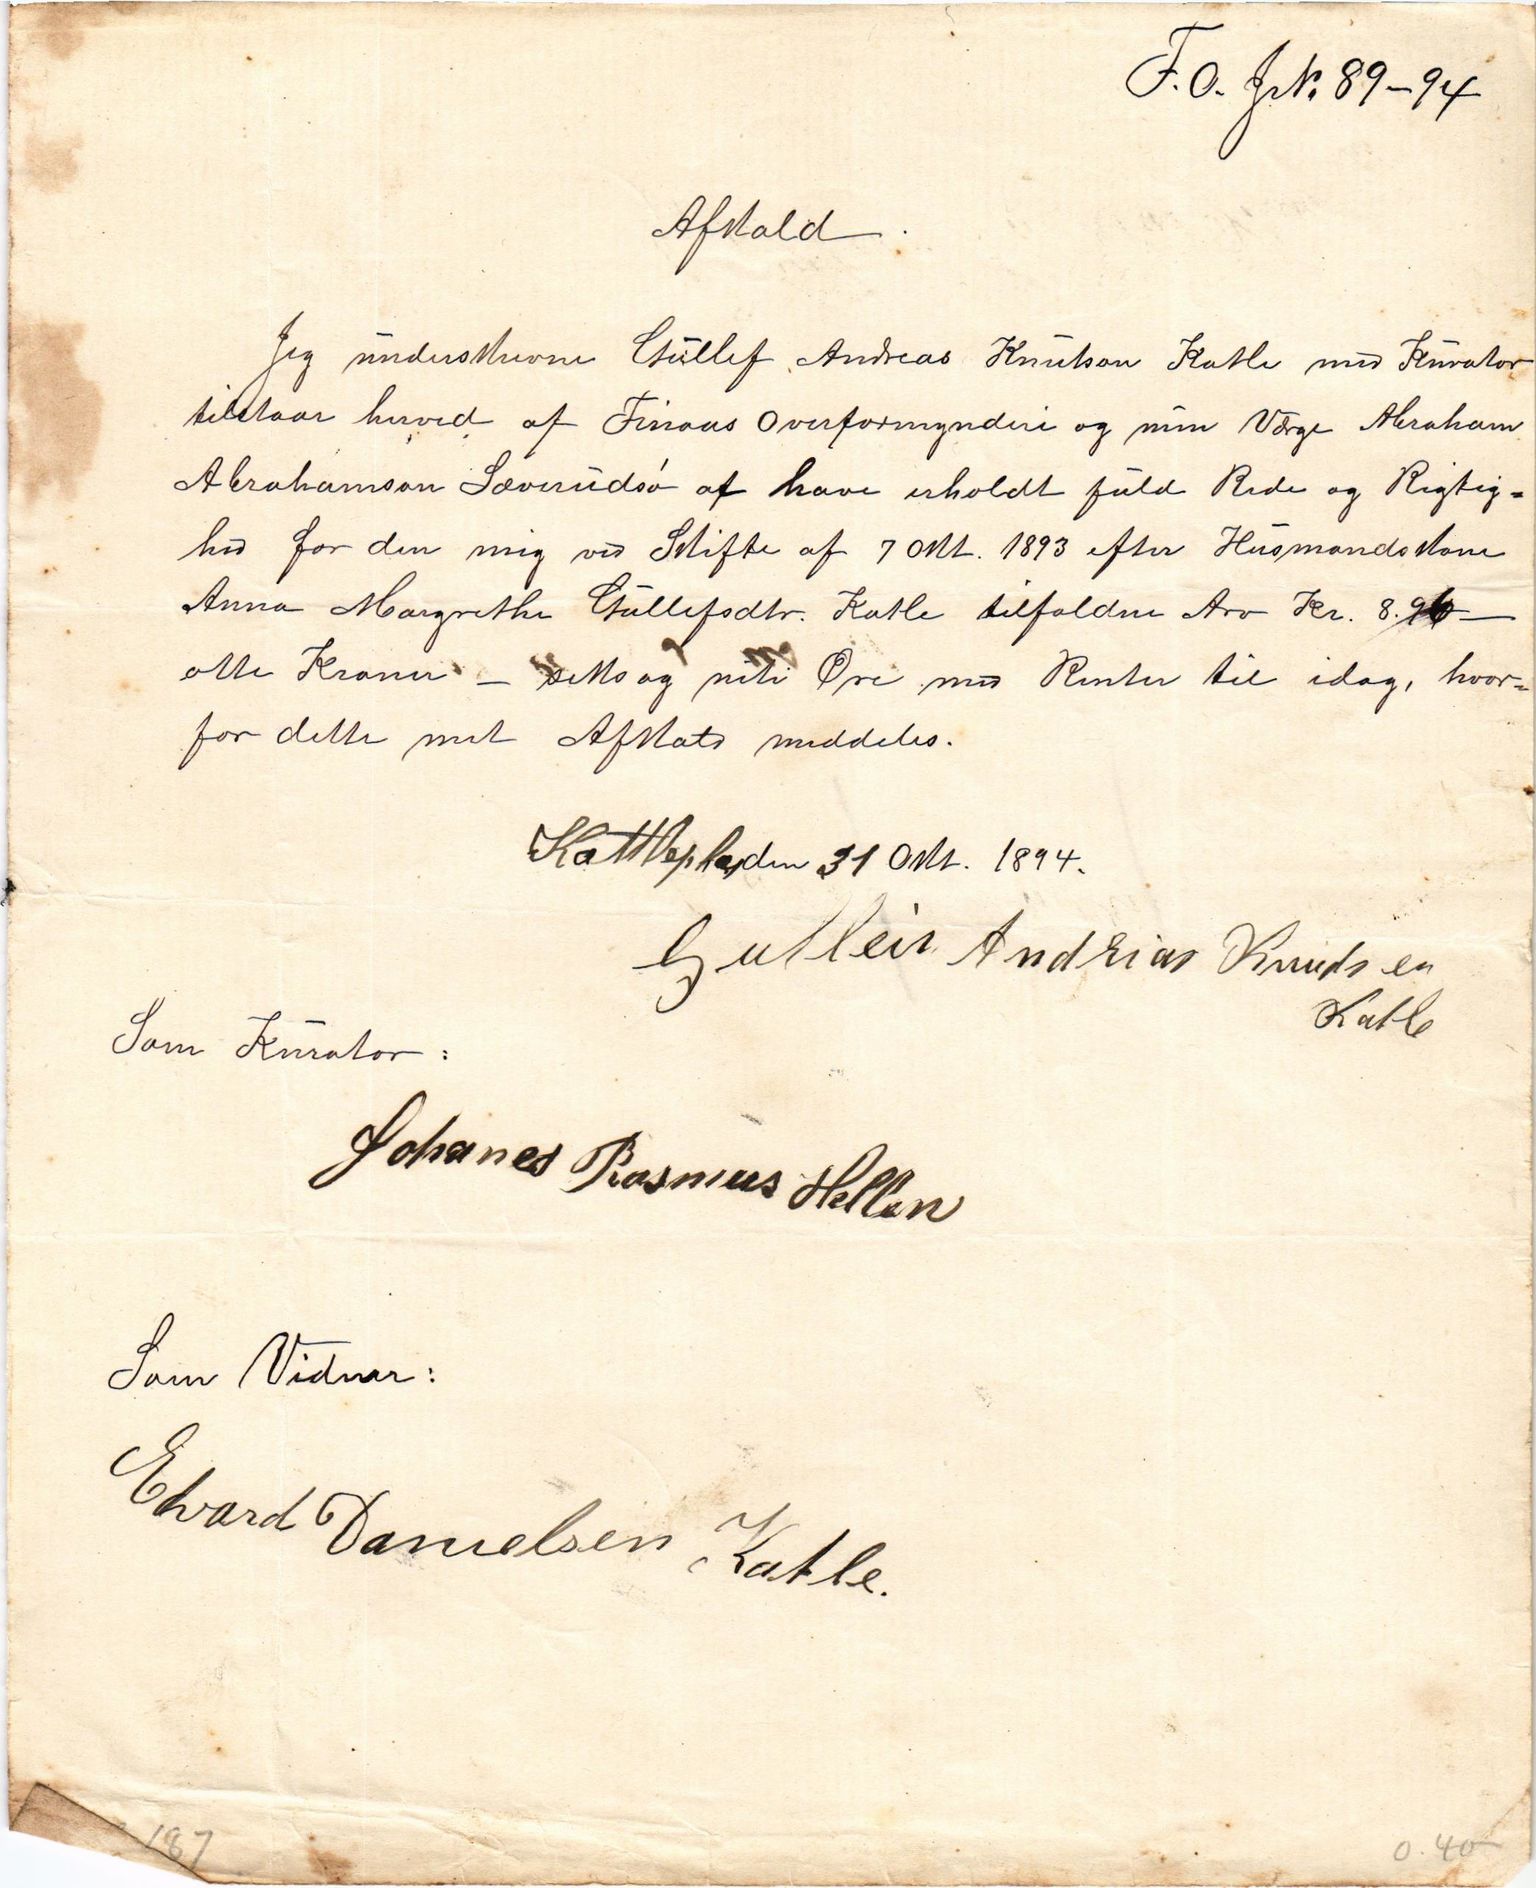 F. O. J.N. 89–94
Afkald.
Jeg underskrevne Gullef Andreas Knutson Katle med Kurator
tilstaar herved af Finaas Overformynderi og min Værge Abraham
Abrahamson Sæverudsø at have erholdt fuld Rede og Rigtig=
hed for den mig ved Skifte af 7 Okt. 1893 efter Husmandskone
Anna Margrethe Gullefsdtr. Katle tilfaldne Arv Kr. 8.96 —
otte Kroner – seks og niti Øre med Renter til idag, hvor=
for dette mit Afkald meddeles.
den 31 Okt. 1894.
Gulleiv Andreas Knudsen
Katle
Som Kurator:
Johanes Rasmus Hellen
Som Vidner:
Edvard Danielsen Katle.
187
0.40